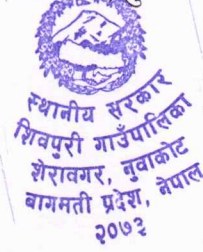 स्थानीय सरकार
शिवपुरी गाउँपालिका
शेरावगर, नुवाकोट
बागमती प्रदेश, नेपाल
२०७३